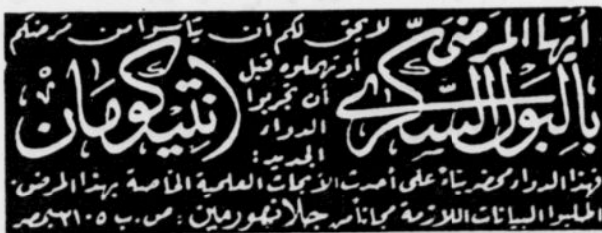 أيها المرضى
بالبول السكري
لا يحق لكم أن تيأسوا من مرضكم
أو تهملوه قبل
أن تجربوا
الدواء
الجديد:
انتيكومان
فهذا الدواء محضر بناءً على أحدث الأبحاث العلمية الخاصة بهذا المرض.
اطلبوا البيانات اللازمة مجاناً من جلانتهورمين: ص.ب ٣١٠٥ بمصر